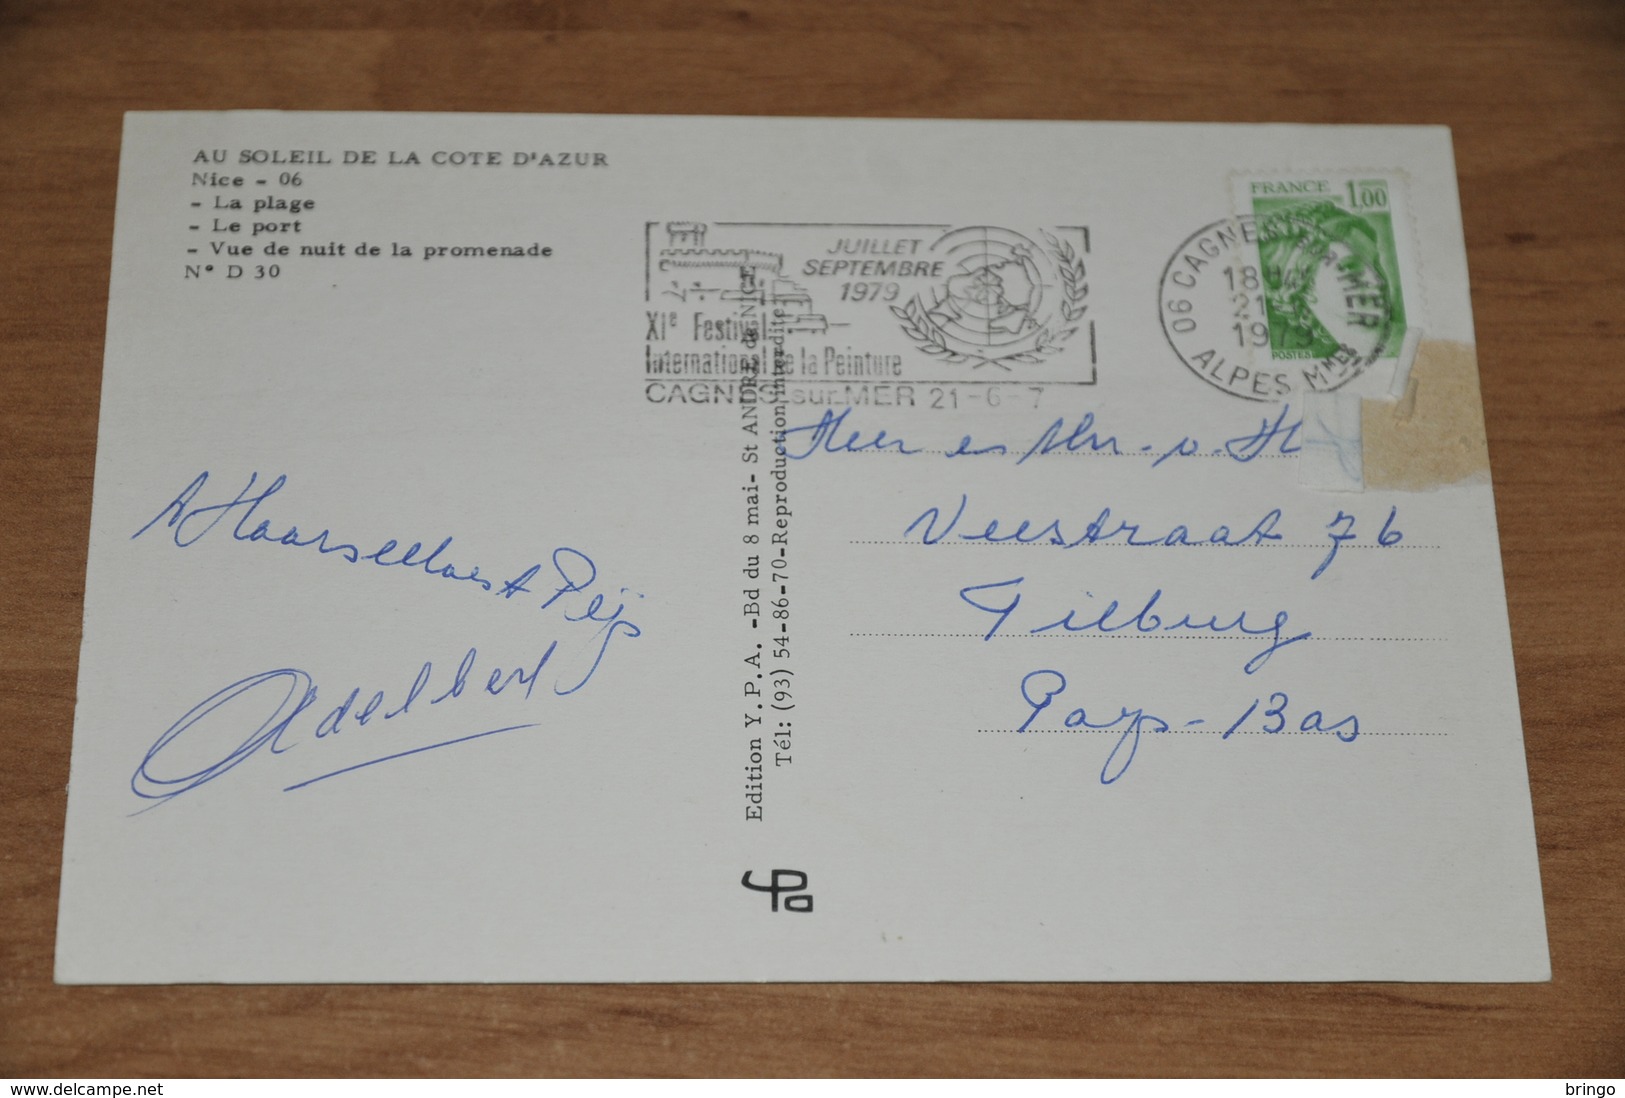 AU SOLEIL DE LA COTE D'AZUR
Nice - 06
- La plage
- Le port
- Vue de nuit de la promenade
N° D 30
JUILLET
SEPTEMBRE
1979
XIe Festival
International de la Peinture
CAGNES sur MER 21-6-7
06 CAGNES-sur-MER
18H
21
1979
ALPES MMES
FRANCE 1,00
POSTES
Edition Y.P.A. -Bd du 8 mai- St ANDRE de NICE
Tél: (93) 54-86-70-Reproduction interdite
Heer en Mw. v. H
Veestraat 76
Tilburg
Pays-Bas
Adelbert
delcampe.net
bringo